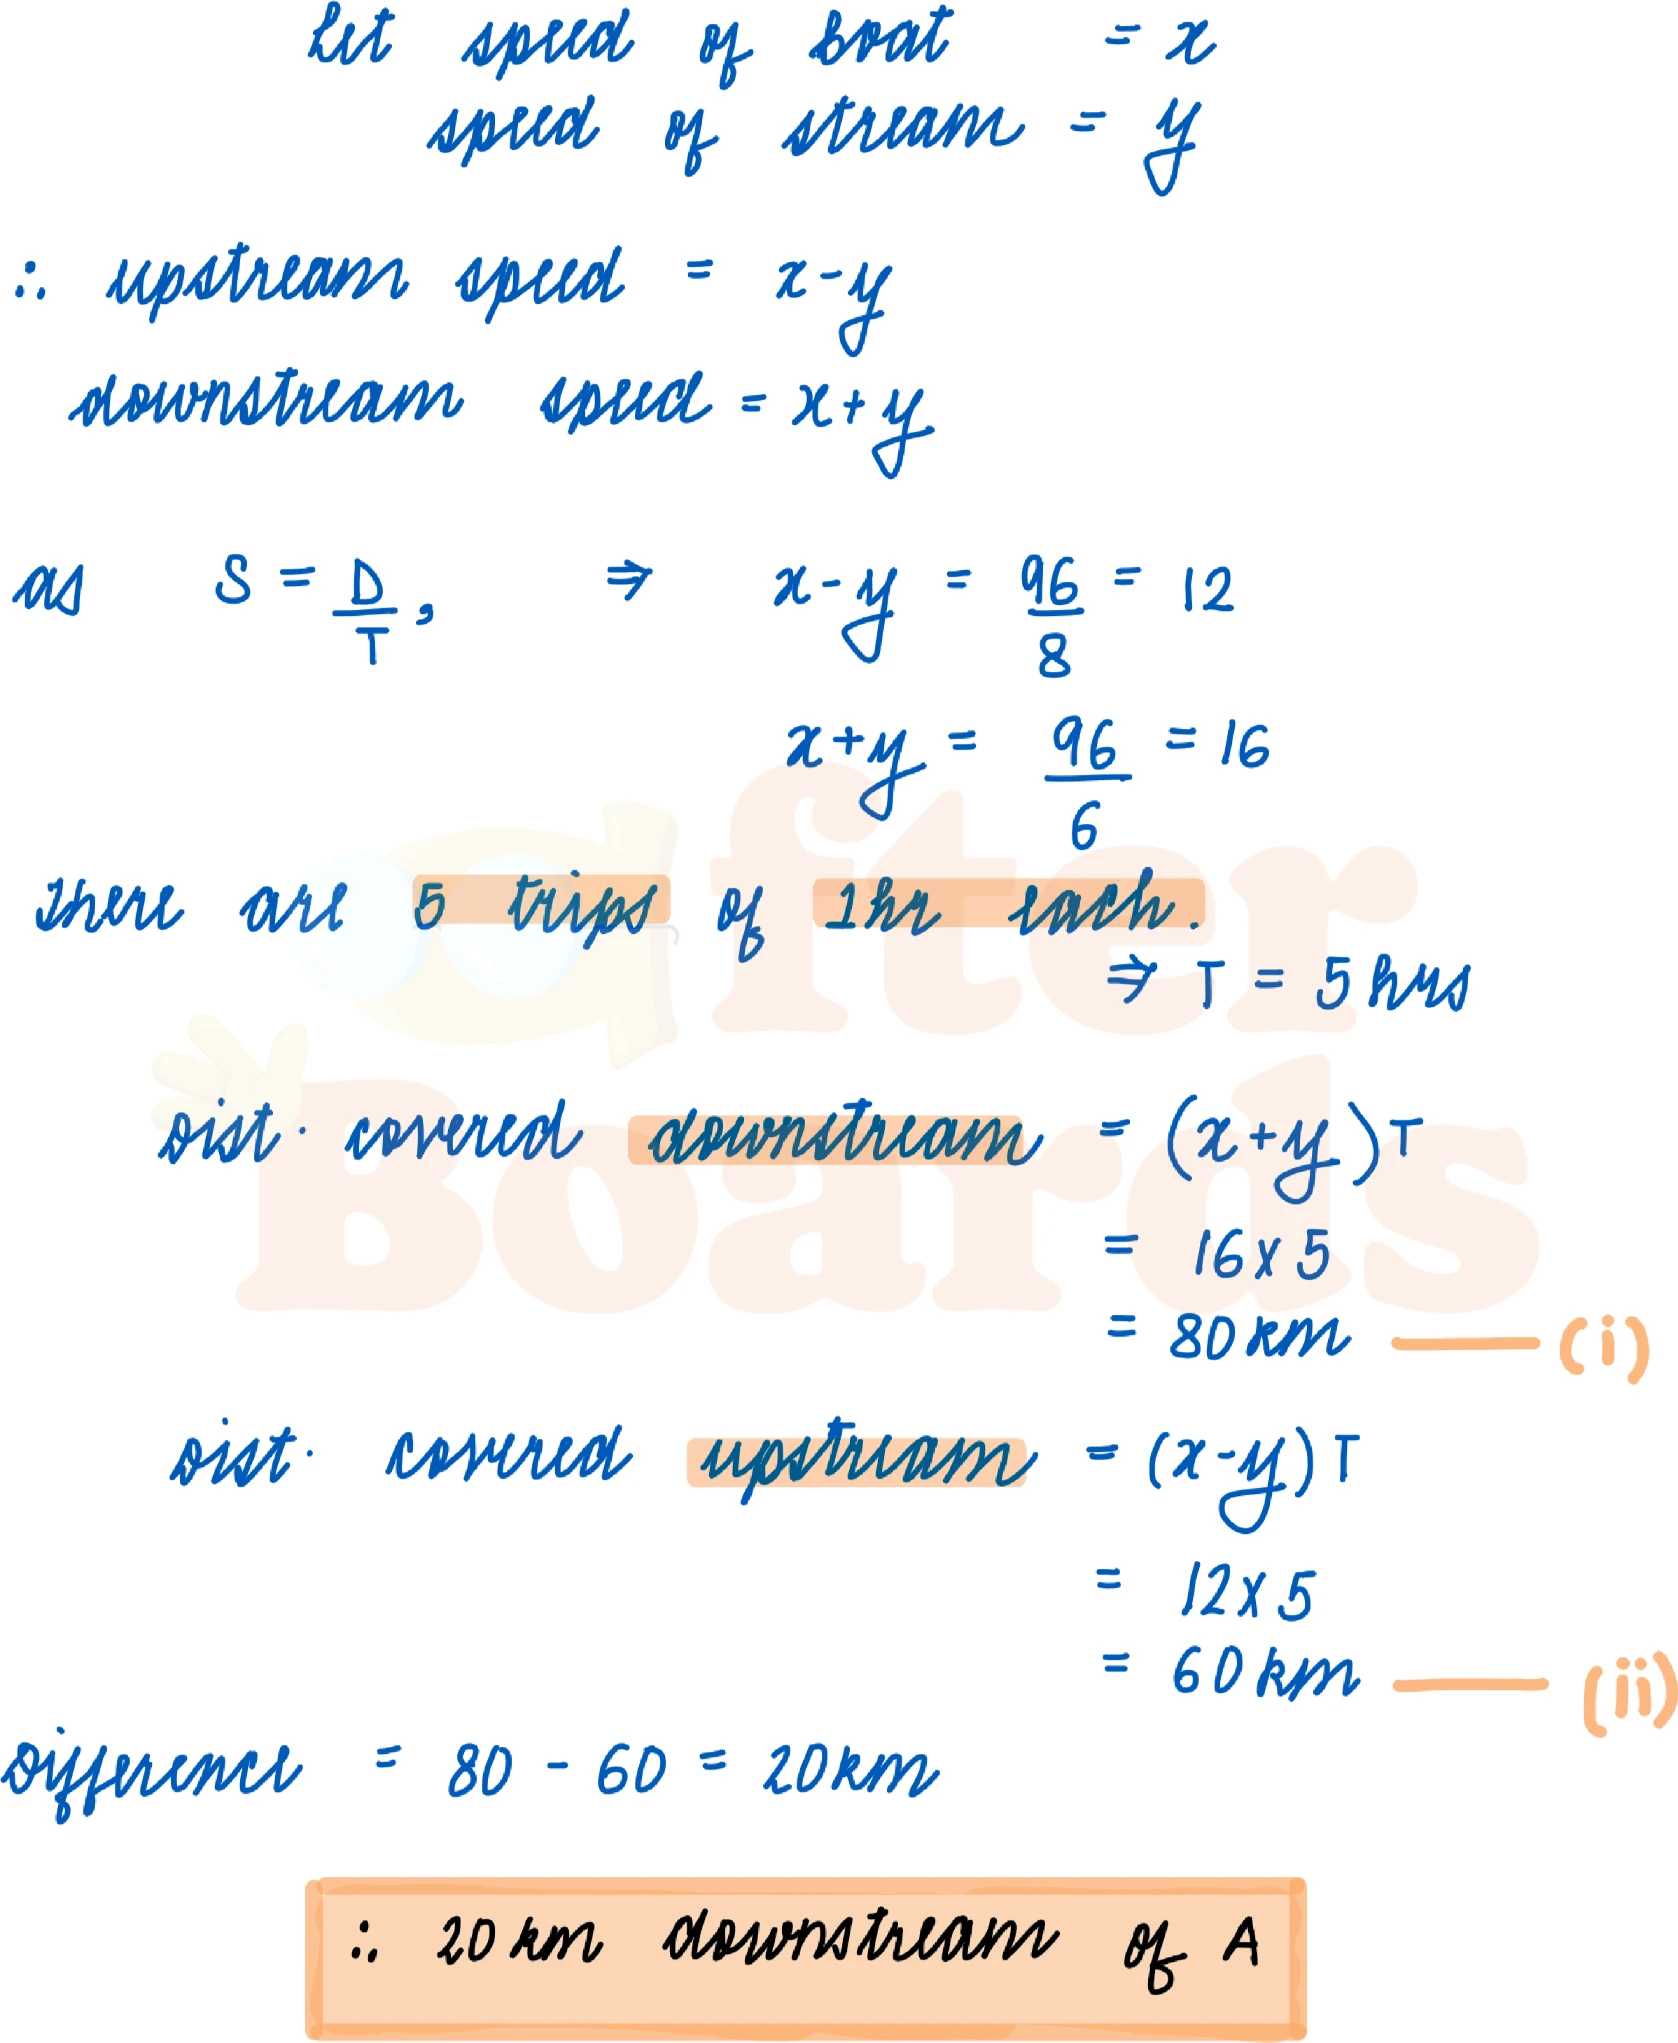 Let speed of boat = x
speed of stream = y
∴ upstream speed = x-y
downstream speed = x+y
as S = D/T, ⇒ x-y = 96/8 = 12
x+y = 96/6 = 16
There are 5 trips of 1hr each.
⇒ T = 5 hrs
Dist. covered downstream = (x+y)T
= 16 x 5
= 80 km — (i)
Dist. covered upstream = (x-y) T
= 12 x 5
= 60 km — (ii)
Difference = 80 - 60 = 20 km
∴ 20 km downstream of A
after
Boards